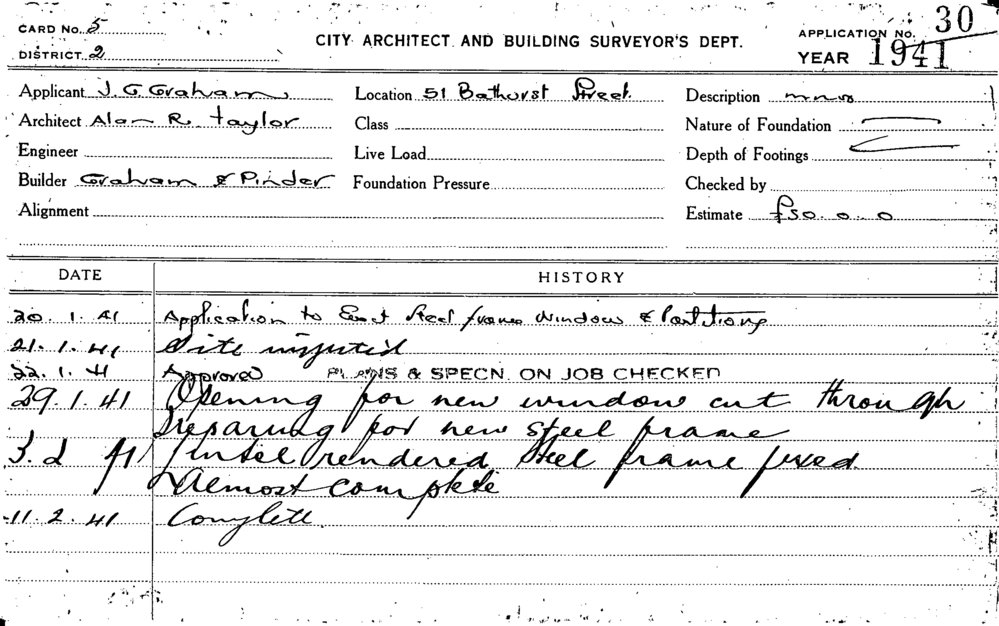 CARD No. 5
DISTRICT 2
CITY ARCHITECT AND BUILDING SURVEYOR'S DEPT.
APPLICATION No. 30
YEAR 1941
Applicant J. G. Graham
Location 51 Bathurst Street
Description
Architect Alan R. Taylor
Class
Nature of Foundation
Engineer
Live Load
Depth of Footings
Builder Graham & Pinder
Foundation Pressure
Checked by
Alignment
Estimate £50. 0. 0
DATE
HISTORY
20. 1. 41 Application to Erect Steel frame Window & Partitions
21. 1. 41 Site inspected
22. 1. 41 Approved PLANS & SPECN. ON JOB CHECKED
29. 1. 41 Opening for new window cut through
Preparing for new steel frame
3. 2 41 Lintel rendered. Steel frame fixed.
Almost complete
11. 2. 41 Complete